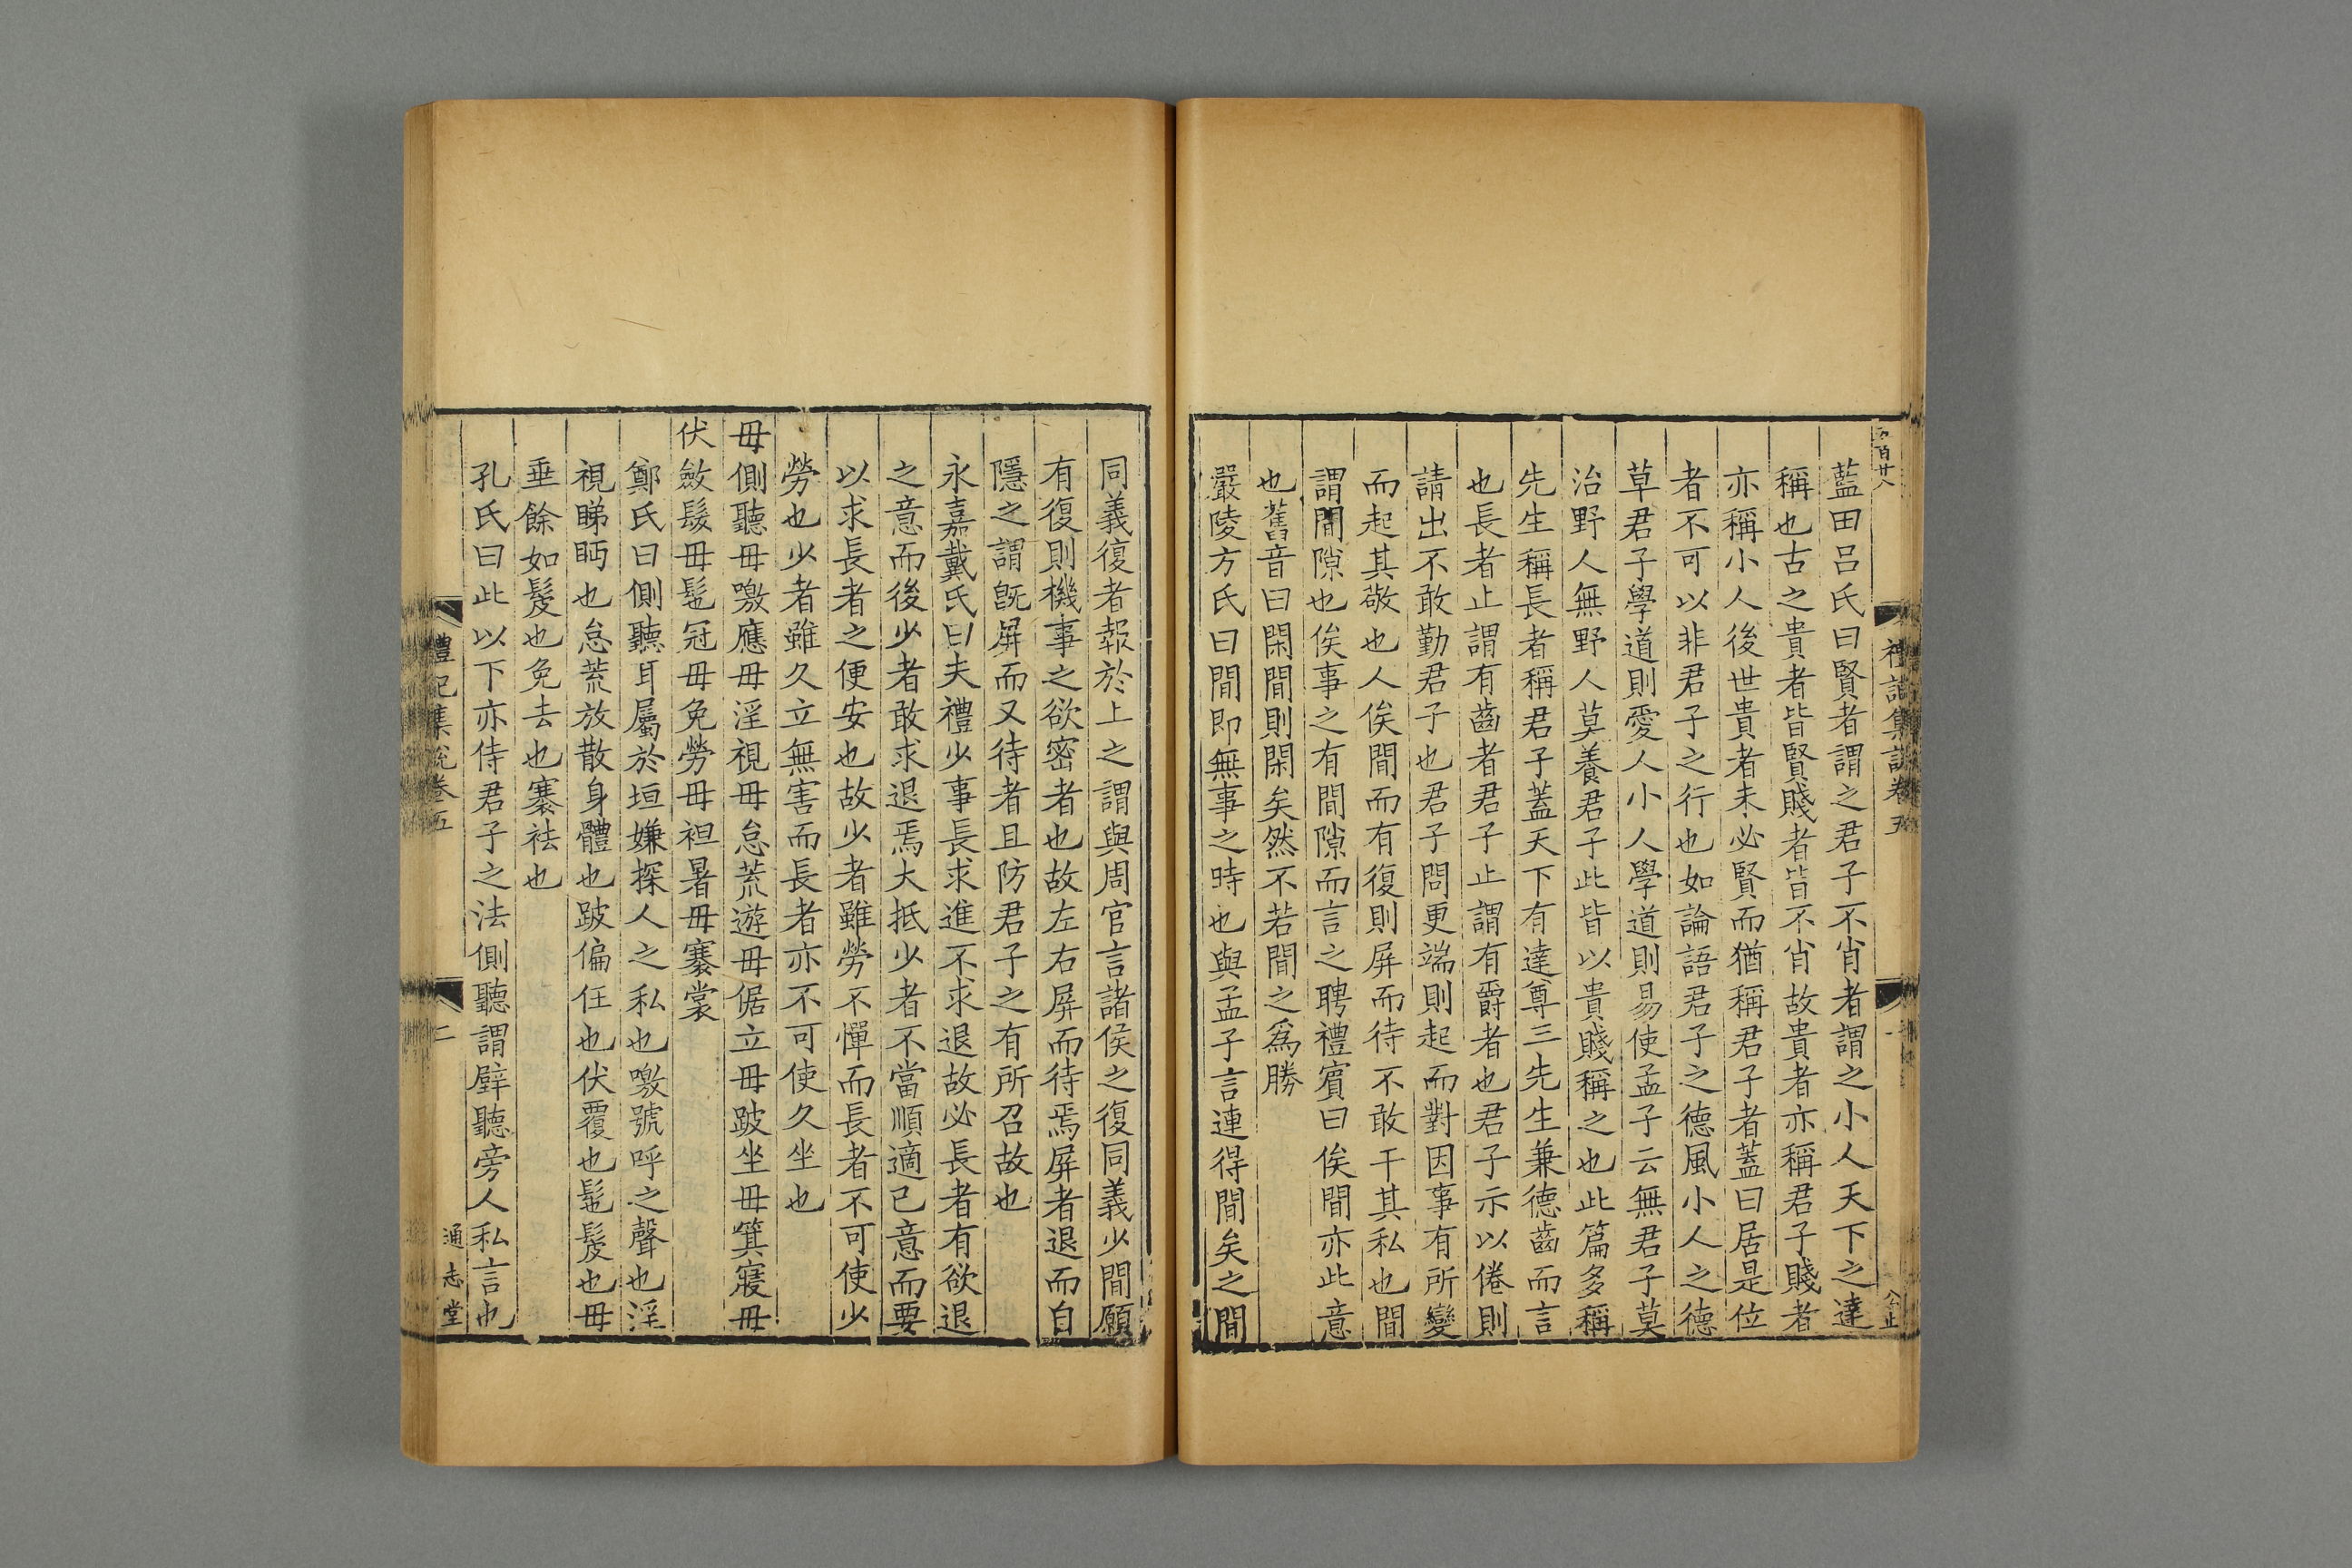 藍田呂氏曰賢者謂之君子不肖者謂之小人天下之達
稱也古之貴者皆賢賤者皆不肖故貴者亦稱君子賤者
亦稱小人後世貴者未必賢而猶稱君子者蓋曰居是位
者不可以非君子之行也如論語君子之德風小人之德
草君子學道則愛人小人學道則易使孟子云無君子莫
治野人無野人莫養君子此皆以貴賤稱之也此篇多稱
先生稱長者稱君子蓋天下有達尊三先生兼德齒而言
也長者止謂有齒者君子止謂有爵者也君子示以倦則
請出不敢勤君子也君子問更端則起而對因事有所變
而起其敬也人俟間而有復則屏而待不敢干其私也間
謂間隙也俟事之有間隙而言之聘禮賓曰俟間亦此意
也舊音曰閑間則閑矣然不若間之爲勝
嚴陵方氏曰間即無事之時也與孟子言連得間矣之間
同義復者報於上之謂與周官言諸侯之復同義少間願
有復則機事之欲密者也故左右屏而待焉屏者退而自
隱之謂旣屏而又待者且防君子之有所召故也
永嘉戴氏曰夫禮少事長求進不求退故必長者有欲退
之意而後少者敢求退焉大抵少者不當順適己意而要
以求長者之便安也故少者雖勞不憚而長者不可使少
勞也少者雖久立無害而長者亦不可使久坐也
毋側聽毋噭應毋淫視毋怠荒遊毋倨立毋跛坐毋箕寢毋
伏斂髮毋髢冠毋免勞毋袒暑毋褰裳
鄭氏曰側聽耳屬於垣嫌探人之私也噭號呼之聲也淫
視睇眄也怠荒放散身體也跛偏任也伏覆也髢髲也毋
垂餘如髲也免去也褰袪也
孔氏曰此以下亦侍君子之法側聽謂辟聽旁人私言也
禮記集說卷五
二
通志堂